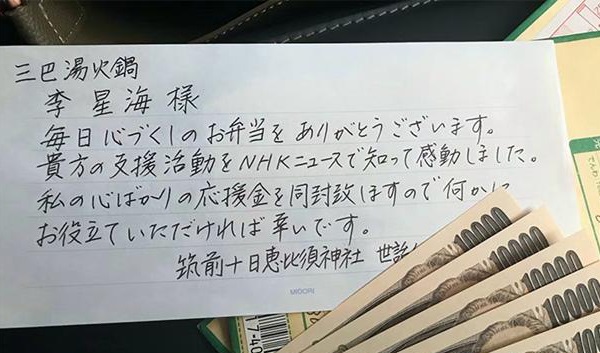 三巴湯火鍋
李星海様
毎日心づくしのお弁当を ありがとうございます。
貴方の支援活動をNHKニュースで知って感動しました。
私の心ばかりの応援金を同封致しますので何かに
お役立ていただければ幸いです。
筑前十日恵比須神社 世話
MIDORI
10000
10000
10000
10000
10000
17-40